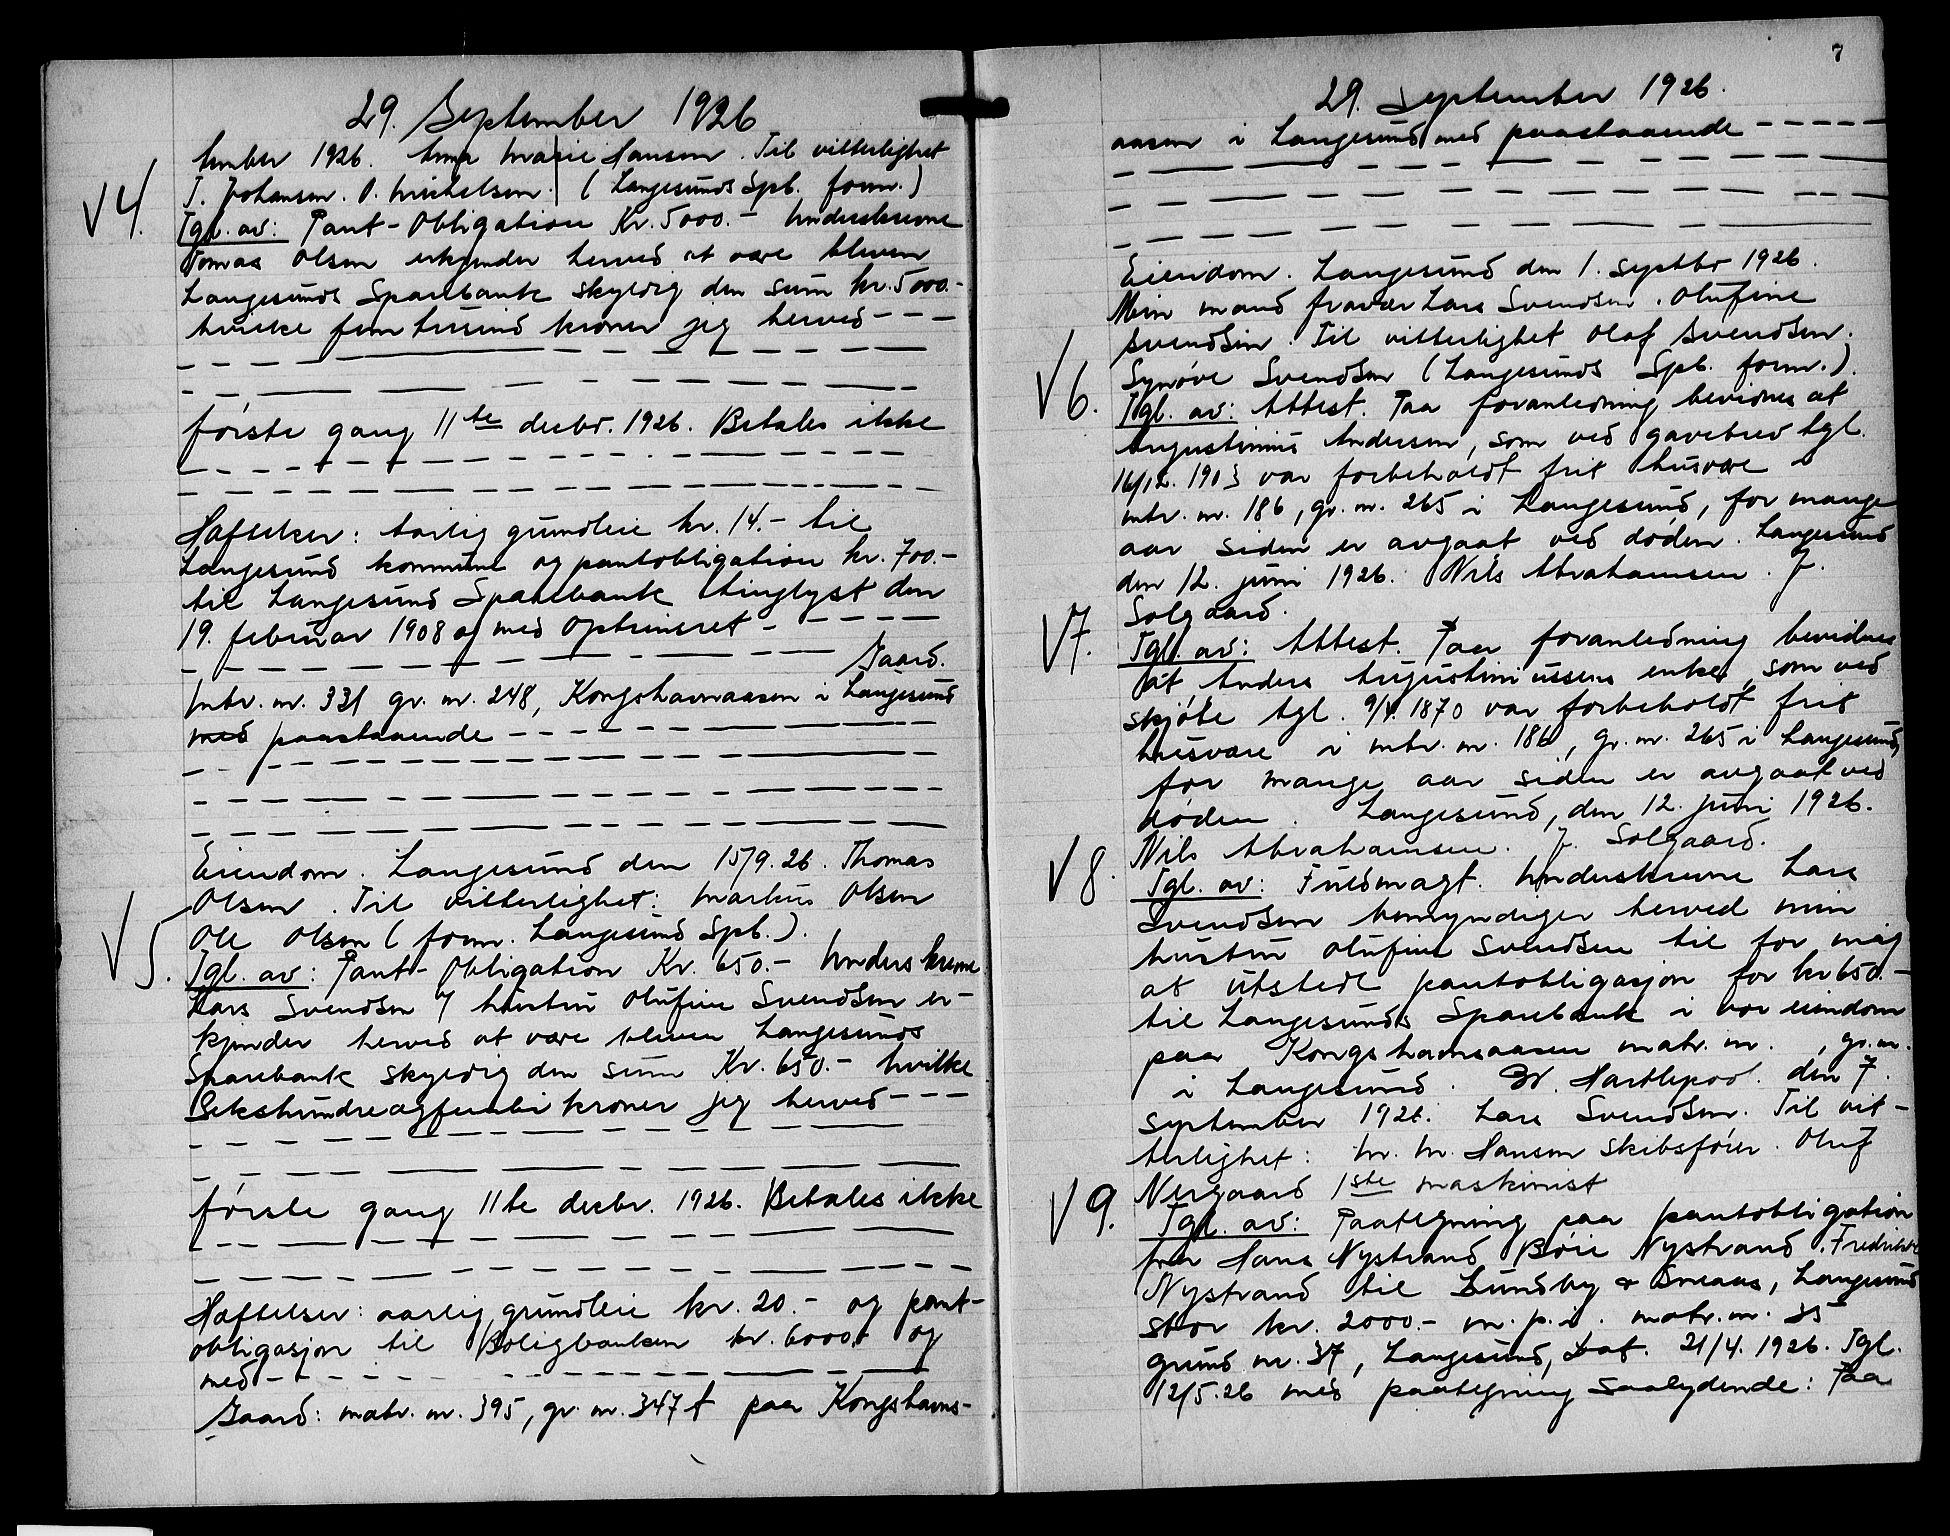 29. September 1926
tember 1926. Anna Marie Hansen. Til vitterlighet
T. Johansen. O. Mikelsen. (Langesunds Spb. form.)
V 4. Tgl. av: Pant-Obligation Kr. 5000.- Underskrevne
Tomas Olsen erkjender herved at være bleven
Langesunds Sparebank skyldig den sum kr. 5000.-
hvilke fem tusind kroner jeg herved - - -
første gang 11te decbr. 1926. Betales ikke
Heftelser: Aarlig grundleie kr. 14.- til
Langesund kommune og pantobligation kr. 700.-
til Langesund Sparebank tinglyst den
19. februar 1908 og med optrinsret - - - - -
Gaard.
Mtr. nr. 331 gr. nr. 248, Kongshavnaasen i Langesund
med paastaaende - - - - -
Eiendom. Langesund den 15/9.26. Thomas
Olsen. Til vitterlighet: Markus Olsen
Ole Olsen (form. Langesund Spb.).
V 5. Tgl. av: Pant-Obligation Kr. 650.- Underskrevne
Lars Svendsen / hustru Olufine Svendsen er-
kjender herved at være bleven Langesunds
Sparebank skyldig den sum Kr. 650.- hvilke
Sekshundreogfemti kroner jeg herved - - -
første gang 11te decbr. 1926. Betales ikke
Heftelser: aarlig grundleie kr. 20.- og pant-
obligasjon til Boligbanken kr. 6000.- og
med - - - - -
Gaard: matr. nr. 395, gr. nr. 347 f paa Kongshavns-
7
29. September 1926.
aasen i Langesund med paastaaende - - - - -
Eiendom. Langesund den 1. septbr 1926.
Min mand fravær Lars Svendsen. Olufine
Svendsen. Til vitterlighet Olaf Svendsen.
Synøve Svendsen (Langesunds Spb. form.).
V 6. Tgl. av: Attest. Paa foranledning bevidnes at
Augustinius Andersen, som ved gavebrev tgl.
16/12. 1903 var forbeholdt frit husvære i
mtr. nr. 186, gr. nr. 265 i Langesund, for mange
aar siden er avgaat ved døden. Langesund
den 12. juni 1926. Nils Abrahamsen. J.
Solgaard.
V 7. Tgl. av: Attest. Paa foranledning bevidnes
at Anders Augustiniussens enke, som ved
skjøte tgl. 9/4. 1870 var forbeholdt frit
husvære i mtr. nr. 186, gr. nr. 265 i Langesund,
for mange aar siden er avgaat ved
døden. Langesund, den 12. juni 1926.
Nils Abrahamsen. J. Solgaard.
V 8. Tgl. av: Fuldmagt. Underskrevne Lars
Svendsen bemyndiger herved min
hustru Olufine Svendsen til for mig
at utstede pantobligasjon for kr 650.-
til Langesunds Sparebank i vor eiendom
paa Kongshavnsaasen matr. nr. , gr. nr.
i Langesund. W. Hartlepool. den 7.
september 1926. Lars Svendsen. Til vit-
terlighet: M. M. Hansen skibsfører. Oluf
Nergaard 1ste maskinist
V 9. Tgl. av: Paategning paa pantobligation
fra Hans Nystrand Bøie Nystrand. Fredrikke
Nystrand til Lundby & Breaas, Langesund
stor kr. 2000.- m. p. i. matr. nr. 35
grund nr. 37, Langesund, Dat. 21/4. 1926. Tgl.
12/5.26 med paategning saalydende: Paa